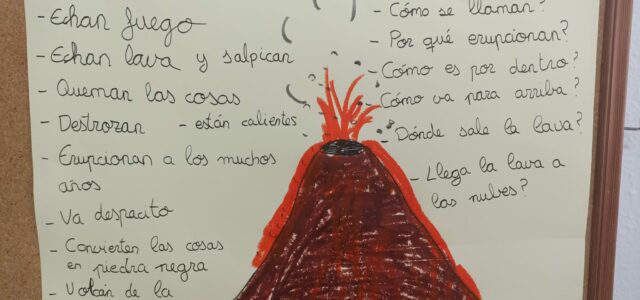 - Echan fuego
- Echan lava y salpican
- Queman las cosas
- Destrozan - están calientes
- Erupcionan a los muchos
años
- Va despacito
- Convierten las cosas
en piedra negra
- Volcán de la
- Cómo se llaman?
- Por qué erupcionan?
- Cómo es por dentro?
- Cómo va para arriba?
- Dónde sale la lava?
- Llega la lava a
las nubes?